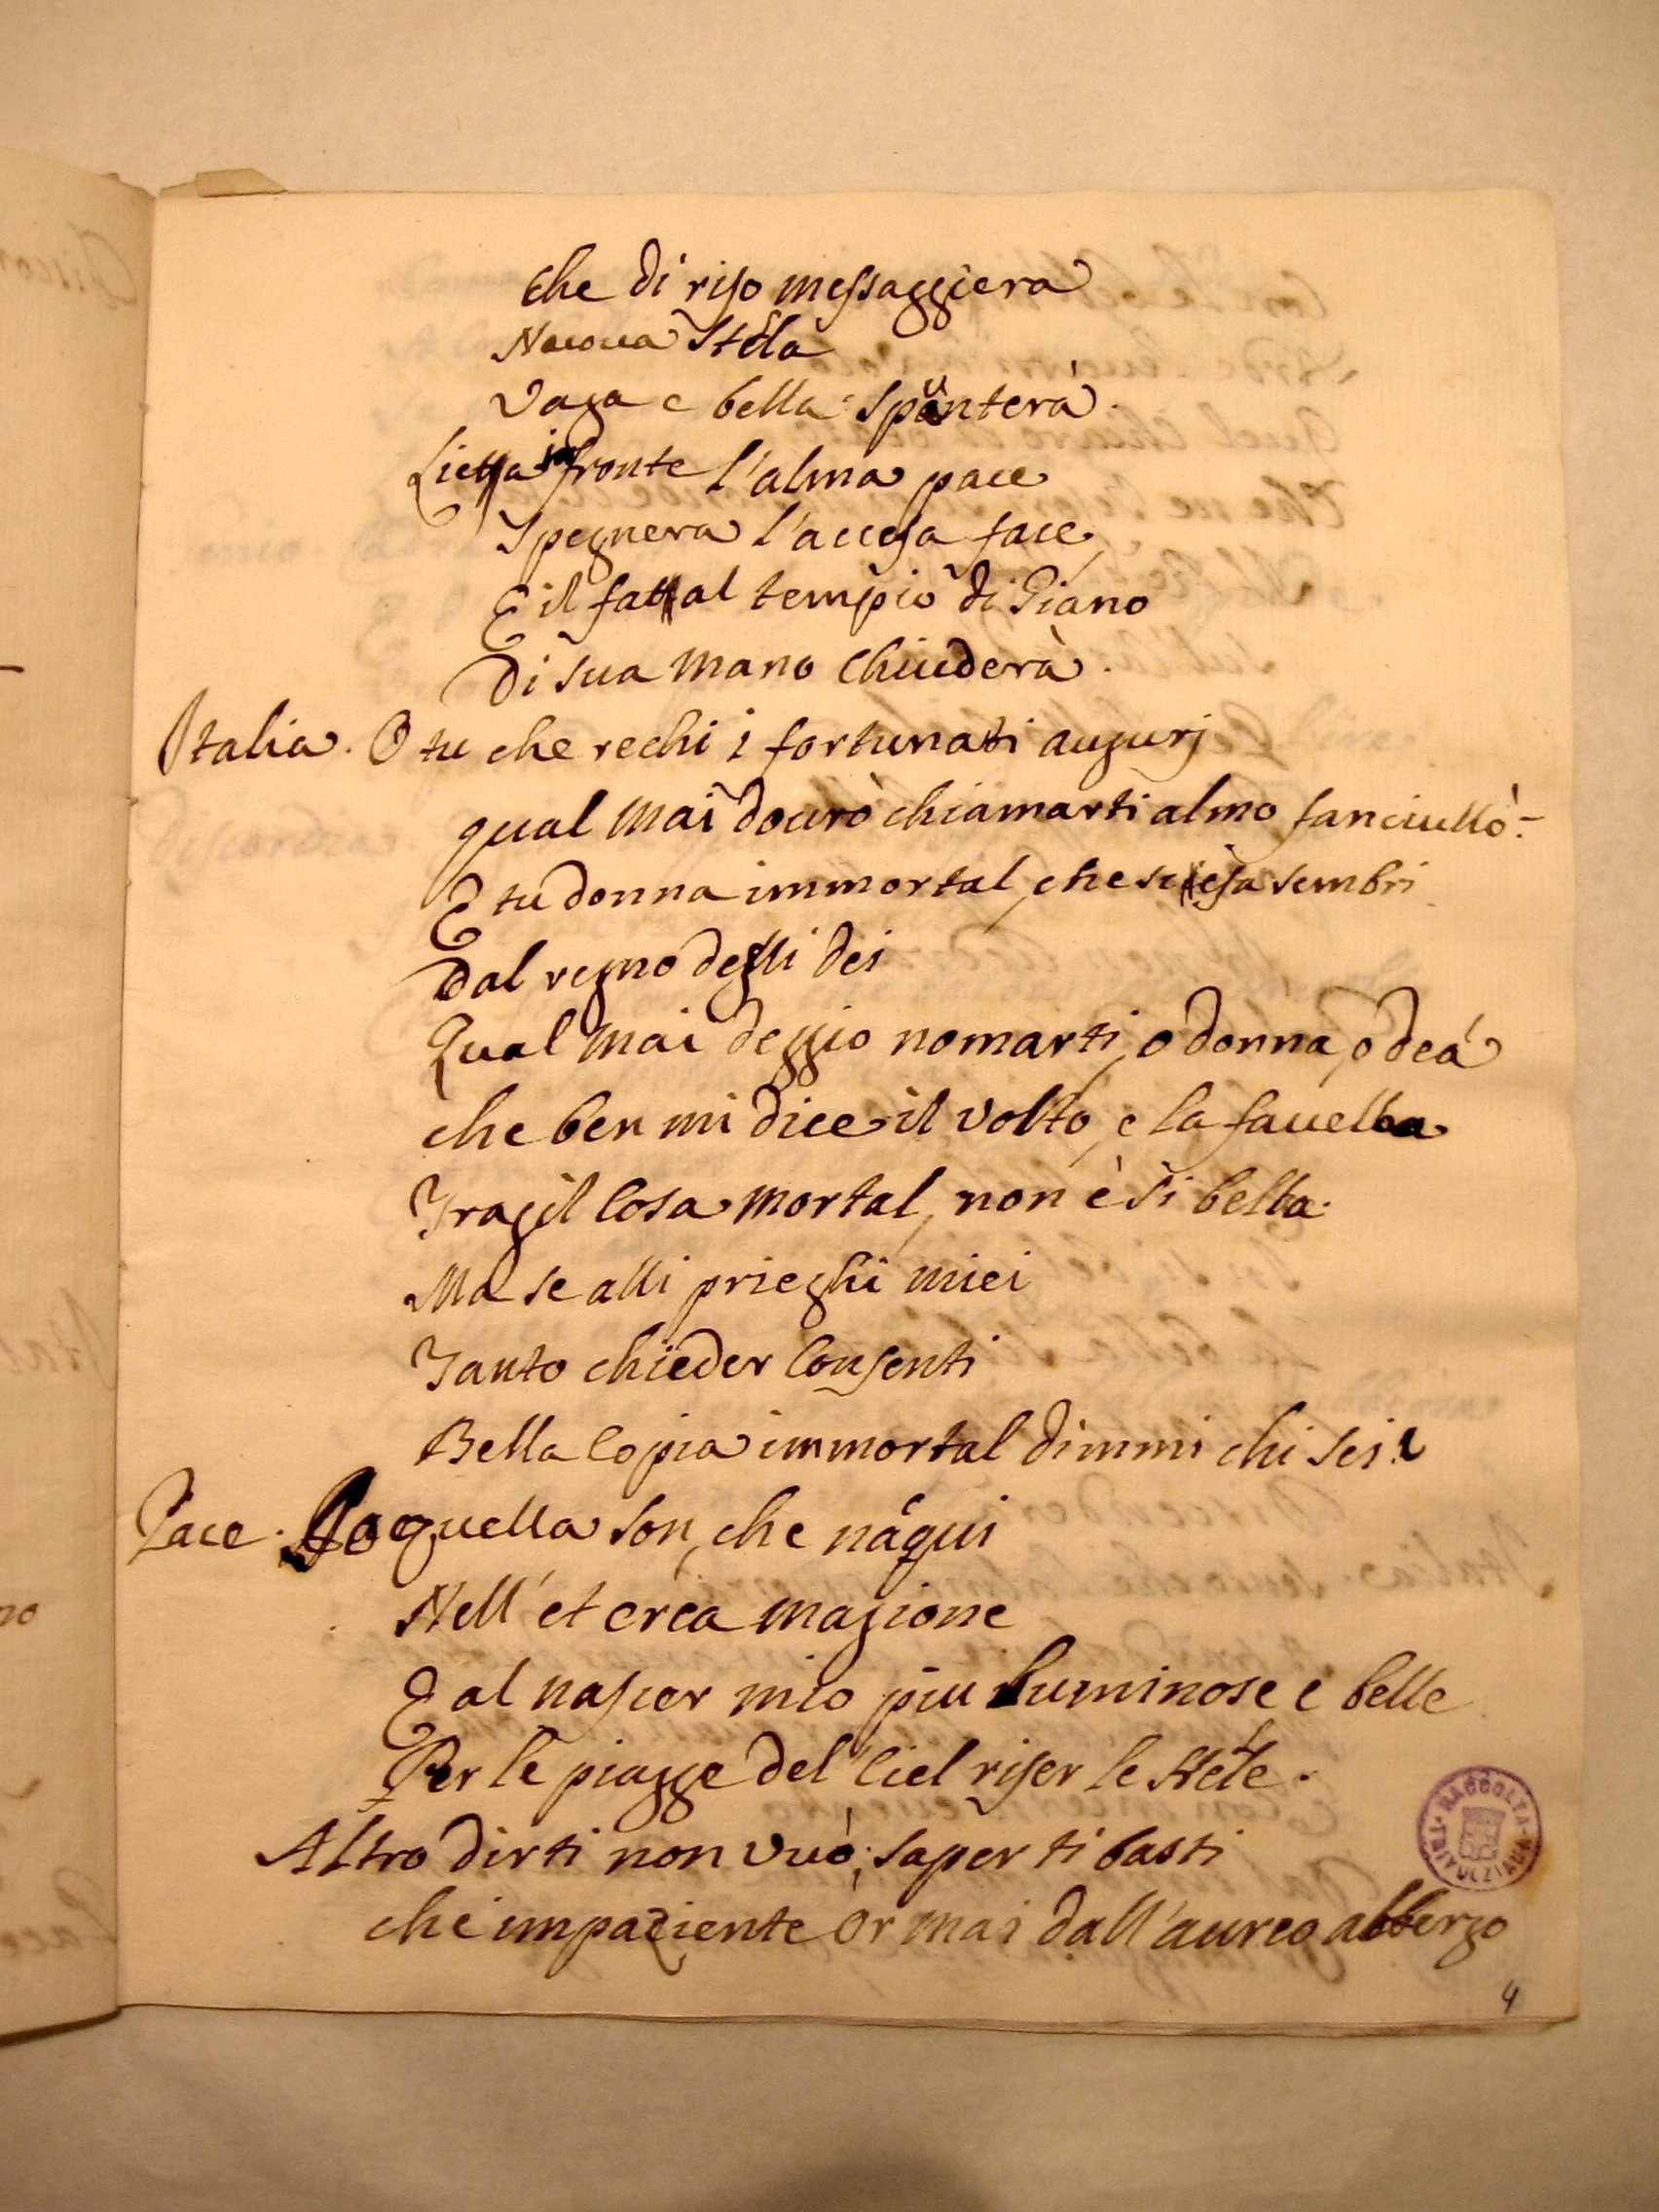 che di riso messaggiera
Nuova Stella
Vaga e bella spunterà.
Lieta in fronte l'alma pace
Spegnera l'accesa face
E il fatal tempio di Giano
Di sua mano chiuderà.
Italia. O tu che rechi i fortunati augurj
qual mai dourò chiamarti almo fanciullo?
E tu donna immortal, che scesa sembri
Dal regno degli dei
Qual mai deggio nomarti, o donna, o dea
che ben mi dice il volto, e la fauella
Fragil cosa mortal, non è si bella.
Ma se alli prieghi miei
Tanto chieder consenti
Bella copia immortal dimmi chi sei?
Pace. Io quella son, che náqui
Nell' eterea magione
E al nascer mio piu luminose e belle
Per le piagge del Ciel riser le stelle.
Altro dirti non vuò; saper ti basti
che impaziente or mai dall'aureo albergo
4
RACCOLTA TRIVULZIANA